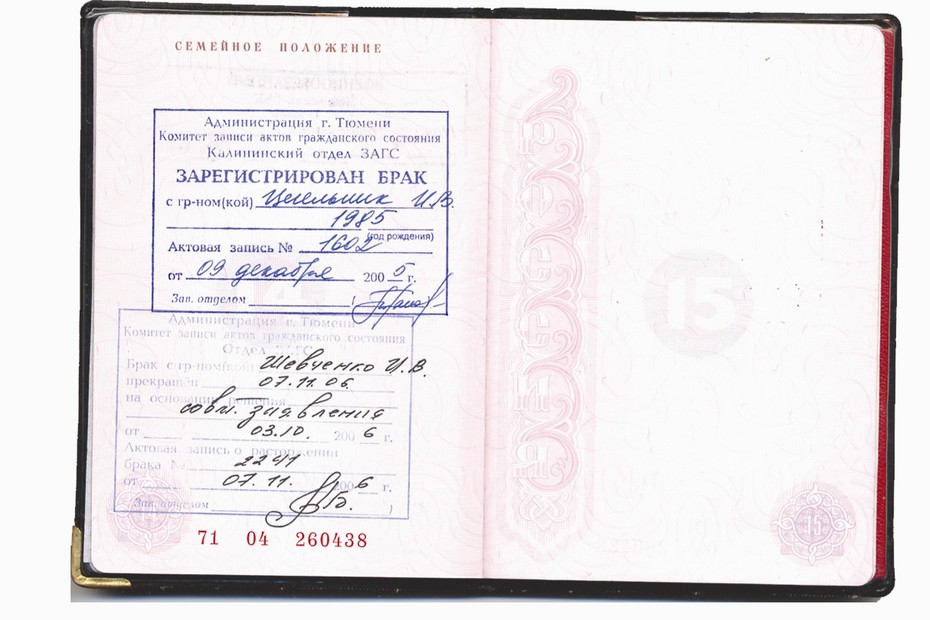 СЕМЕЙНОЕ ПОЛОЖЕНИЕ
Администрация г. Тюмени
Комитет записи актов гражданского состояния
Калининский отдел ЗАГС
ЗАРЕГИСТРИРОВАН БРАК
с гр-ном(кой) И.В.
1985
(год рождения)
Актовая запись № 1602
от 09 декабря 2005 г.
Зав. отделом (
Администрация г. Тюмени
Комитет записи актов гражданского состояния
Отдел ЗАГС
Брак с гр-ном(кой) Шевченко И.В.
прекращён 07.11.06
на основании решения
совм. заявления
от 03.10. 2006 г.
Актовая запись о расторжении
брака № 2241
от 07.11. 2006 г.
Зав. отделом )
71 04 260438
15
15